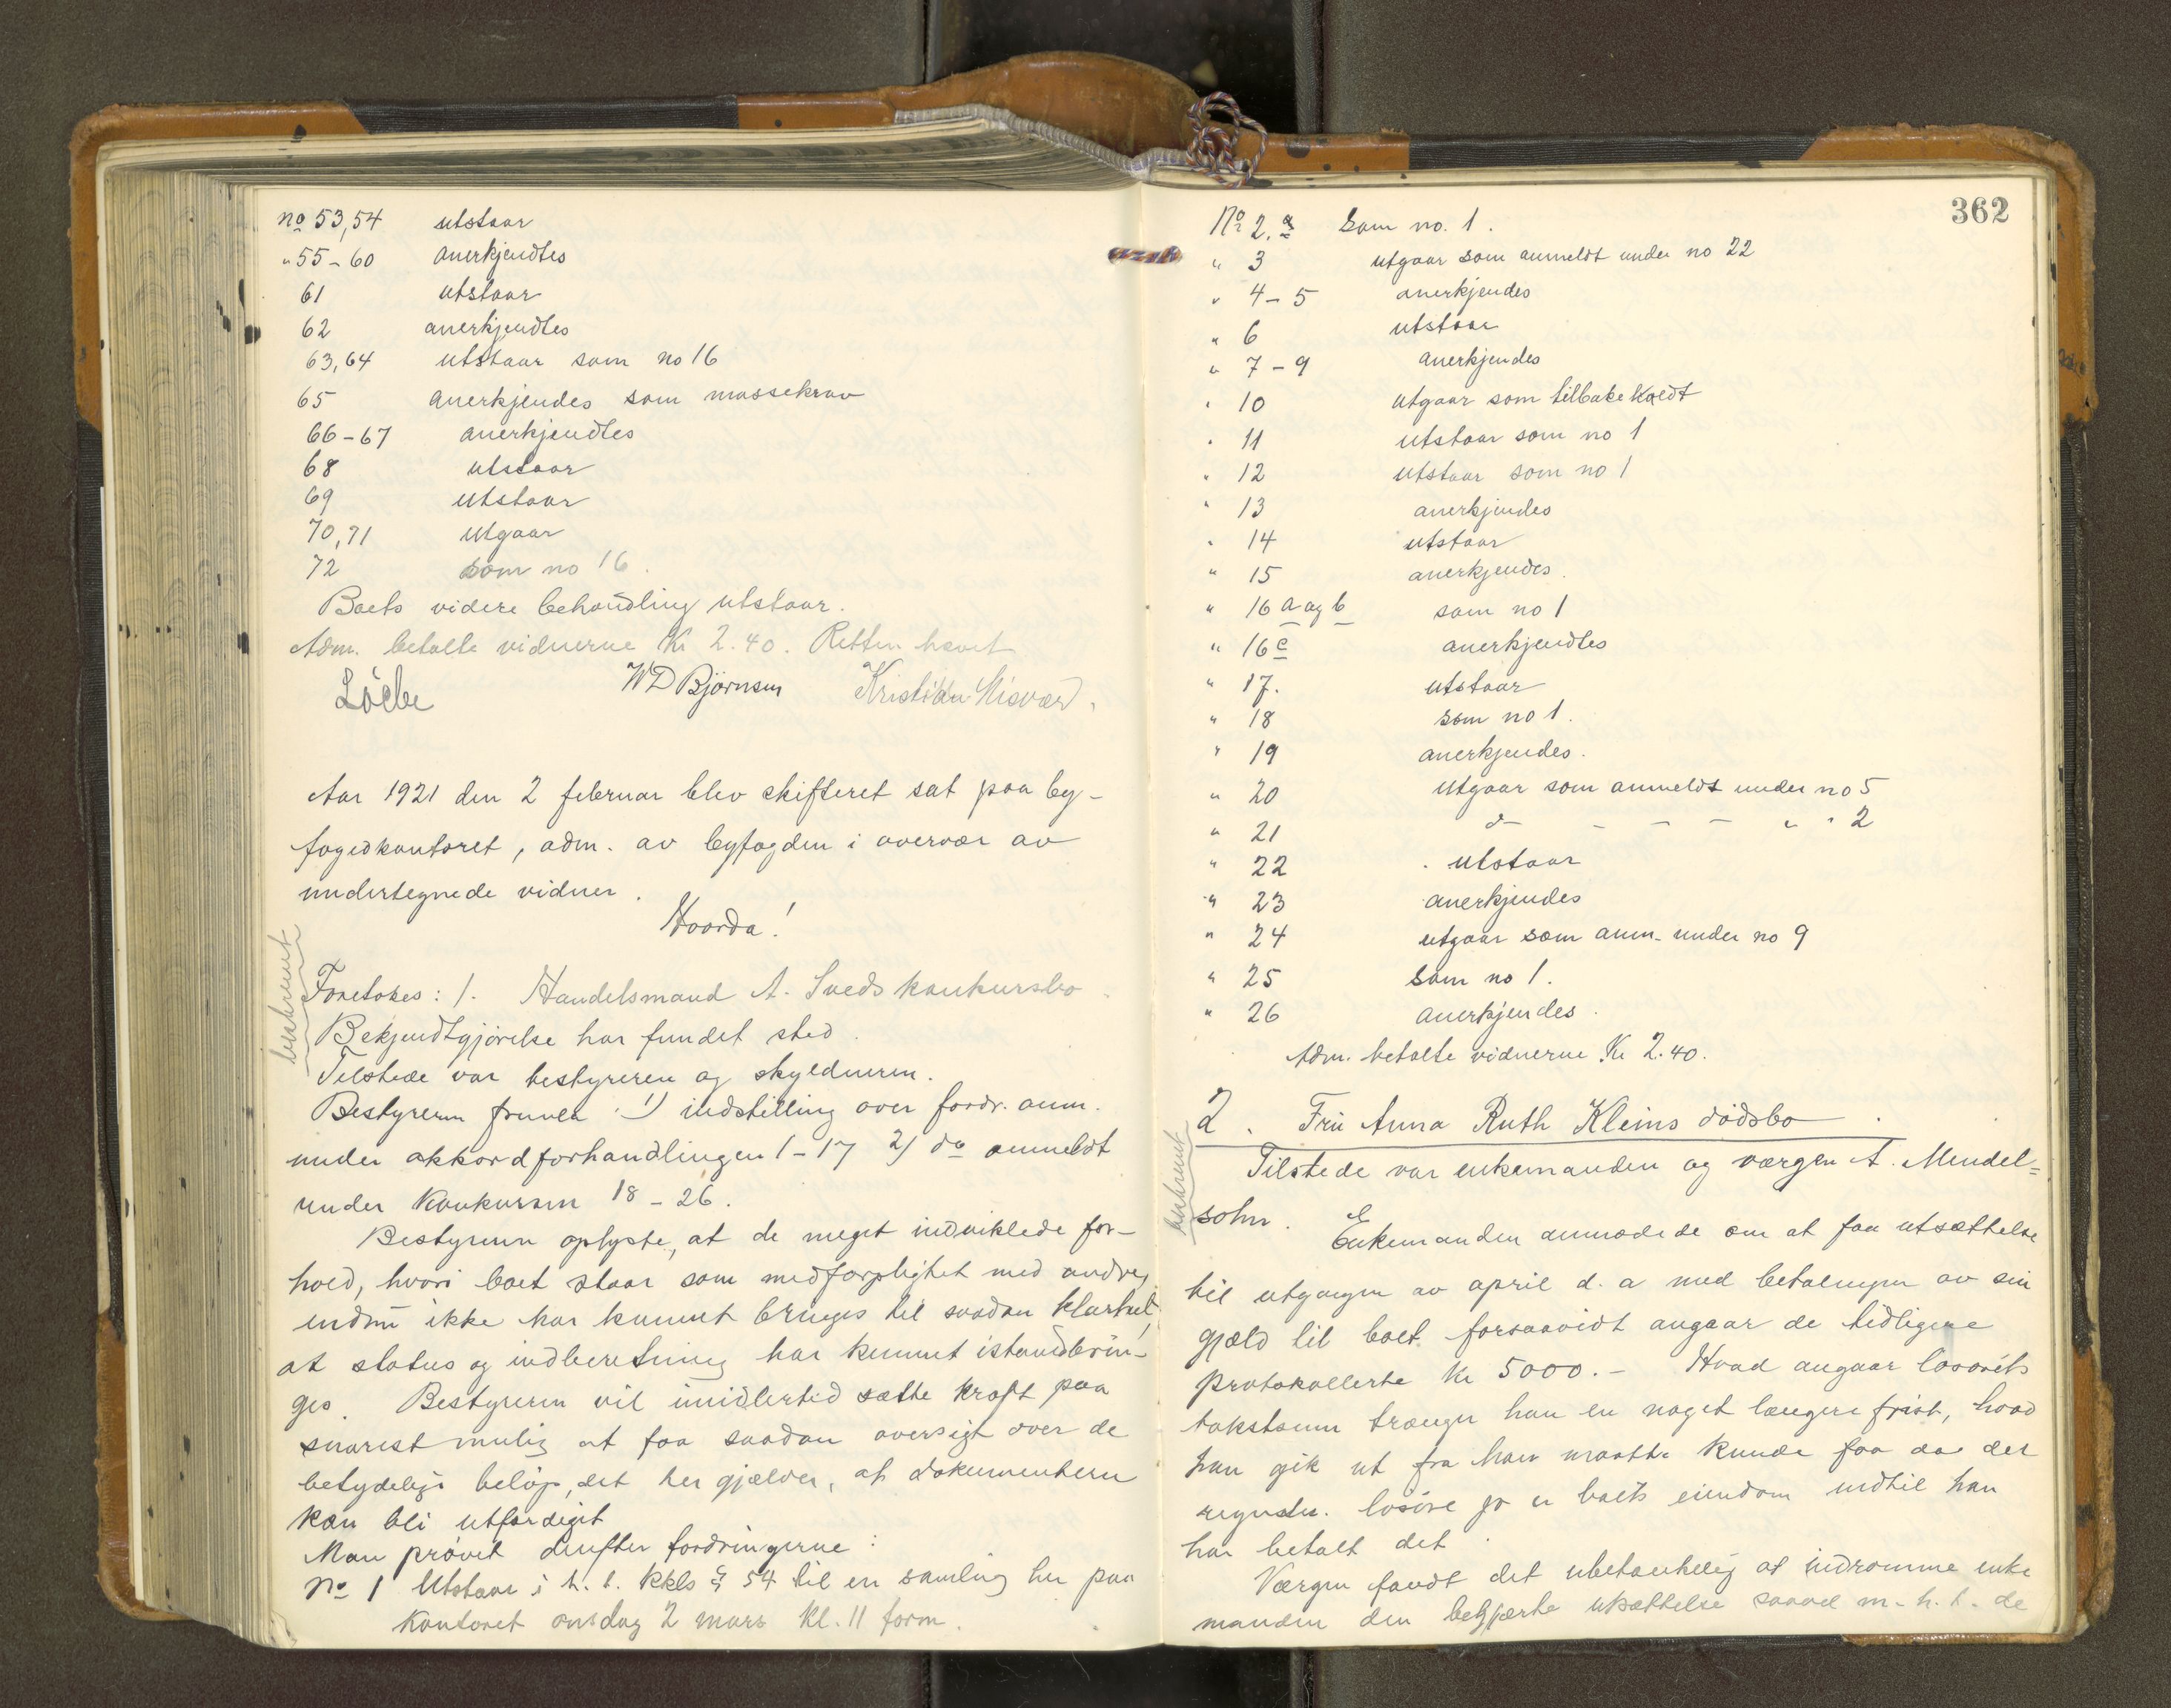 No 53,54 utstaar
" 55-60 anerkjendtes
61 utstaar
62 anerkjendtes
63,64 utstaar som no 16
65 anerkjendes som massekrav
66-67 anerkjendtes
68 utstaar
69 utstaar
70,71 utgaar
72 som no 16.
Boets videre behandling utstaar.
Adm. betalte vidnerne Kr 2.40. Retten hævet
WD Bjørnsen Kristian
Aar 1921 den 2 februar blev skifteret sat paa by-
fogedkontoret, adm. av byfogden i overvær av
undertegnede vidner.
Hvorda!
Foretokes: 1. Handelsmand A. Sveds konkursbo
Bekjendtgjørelse har fundet sted.
Tilstede var bestyreren og skyldneren.
Bestyreren fremla 1) indstilling over fordr. anm.
under akkordforhandlingen 1-17 2) do anmeldt
under konkursen 18-26.
Bestyreren oplyste, at de meget indviklede for-
hold, hvori boet staar som medforpligtet med andre,
endnu ikke har kunnet bringes til saadan klarhet,
at status og indberetning har kunnet istandbrin-
ges. Bestyreren vil imidlertid sætte kraft paa
snarest mulig at faa saadan oversigt over de
betydelige beløp, det her gjælder, at dokumenterne
kan bli utfærdiget
Man prøvet derefter fordringerne:
No 1 Utstaar i h. t. kkls § 54 til en samling her paa
kontoret onsdag 2 mars kl. 11 form.
362
No 2.a Som no. 1.
" 3 utgaar som anmeldt under no 22
" 4-5 anerkjendes
" 6 utstaar
" 7-9 anerkjendes
" 10 utgaar som tilbakekaldt
" 11 utstaar som no 1
" 12 utstaar som no 1
" 13 anerkjendes
" 14 utstaar
" 15 anerkjendes.
" 16 a og b som no 1
" 16 c anerkjendtes
" 17. utstaar
" 18 som no 1.
" 19 anerkjendes.
" 20 utgaar som anmeldt under no 5
" 21 do - - - " " 2
" 22 utstaar
" 23 anerkjendes
" 24 utgaar som anm. under no 9
" 25 som no 1.
" 26 anerkjendes.
Adm. betalte vidnerne Kr 2.40.
2. Fru Anna Ruth Kleins dødsbo
Tilstede var enkemanden og værgen A. Mendel=
sohn.
Enkemanden anmodede om at faa utsættelse
til utgangen av april d. a med betalingen av sin
gjæld til boet forsaavidt angaar de tidligere
protokollerte Kr 5000.- Hvad angaar løsørets
takstsum trænger han en noget længere frist, hvad
han gik ut fra han maatte kunde faa da det
løsøre jo er boets eiendom indtil han
har betalt det.
Værgen fandt det ubetænkelig at indrømme enke
manden den begjærte utsættelse saavel m. h. t. de